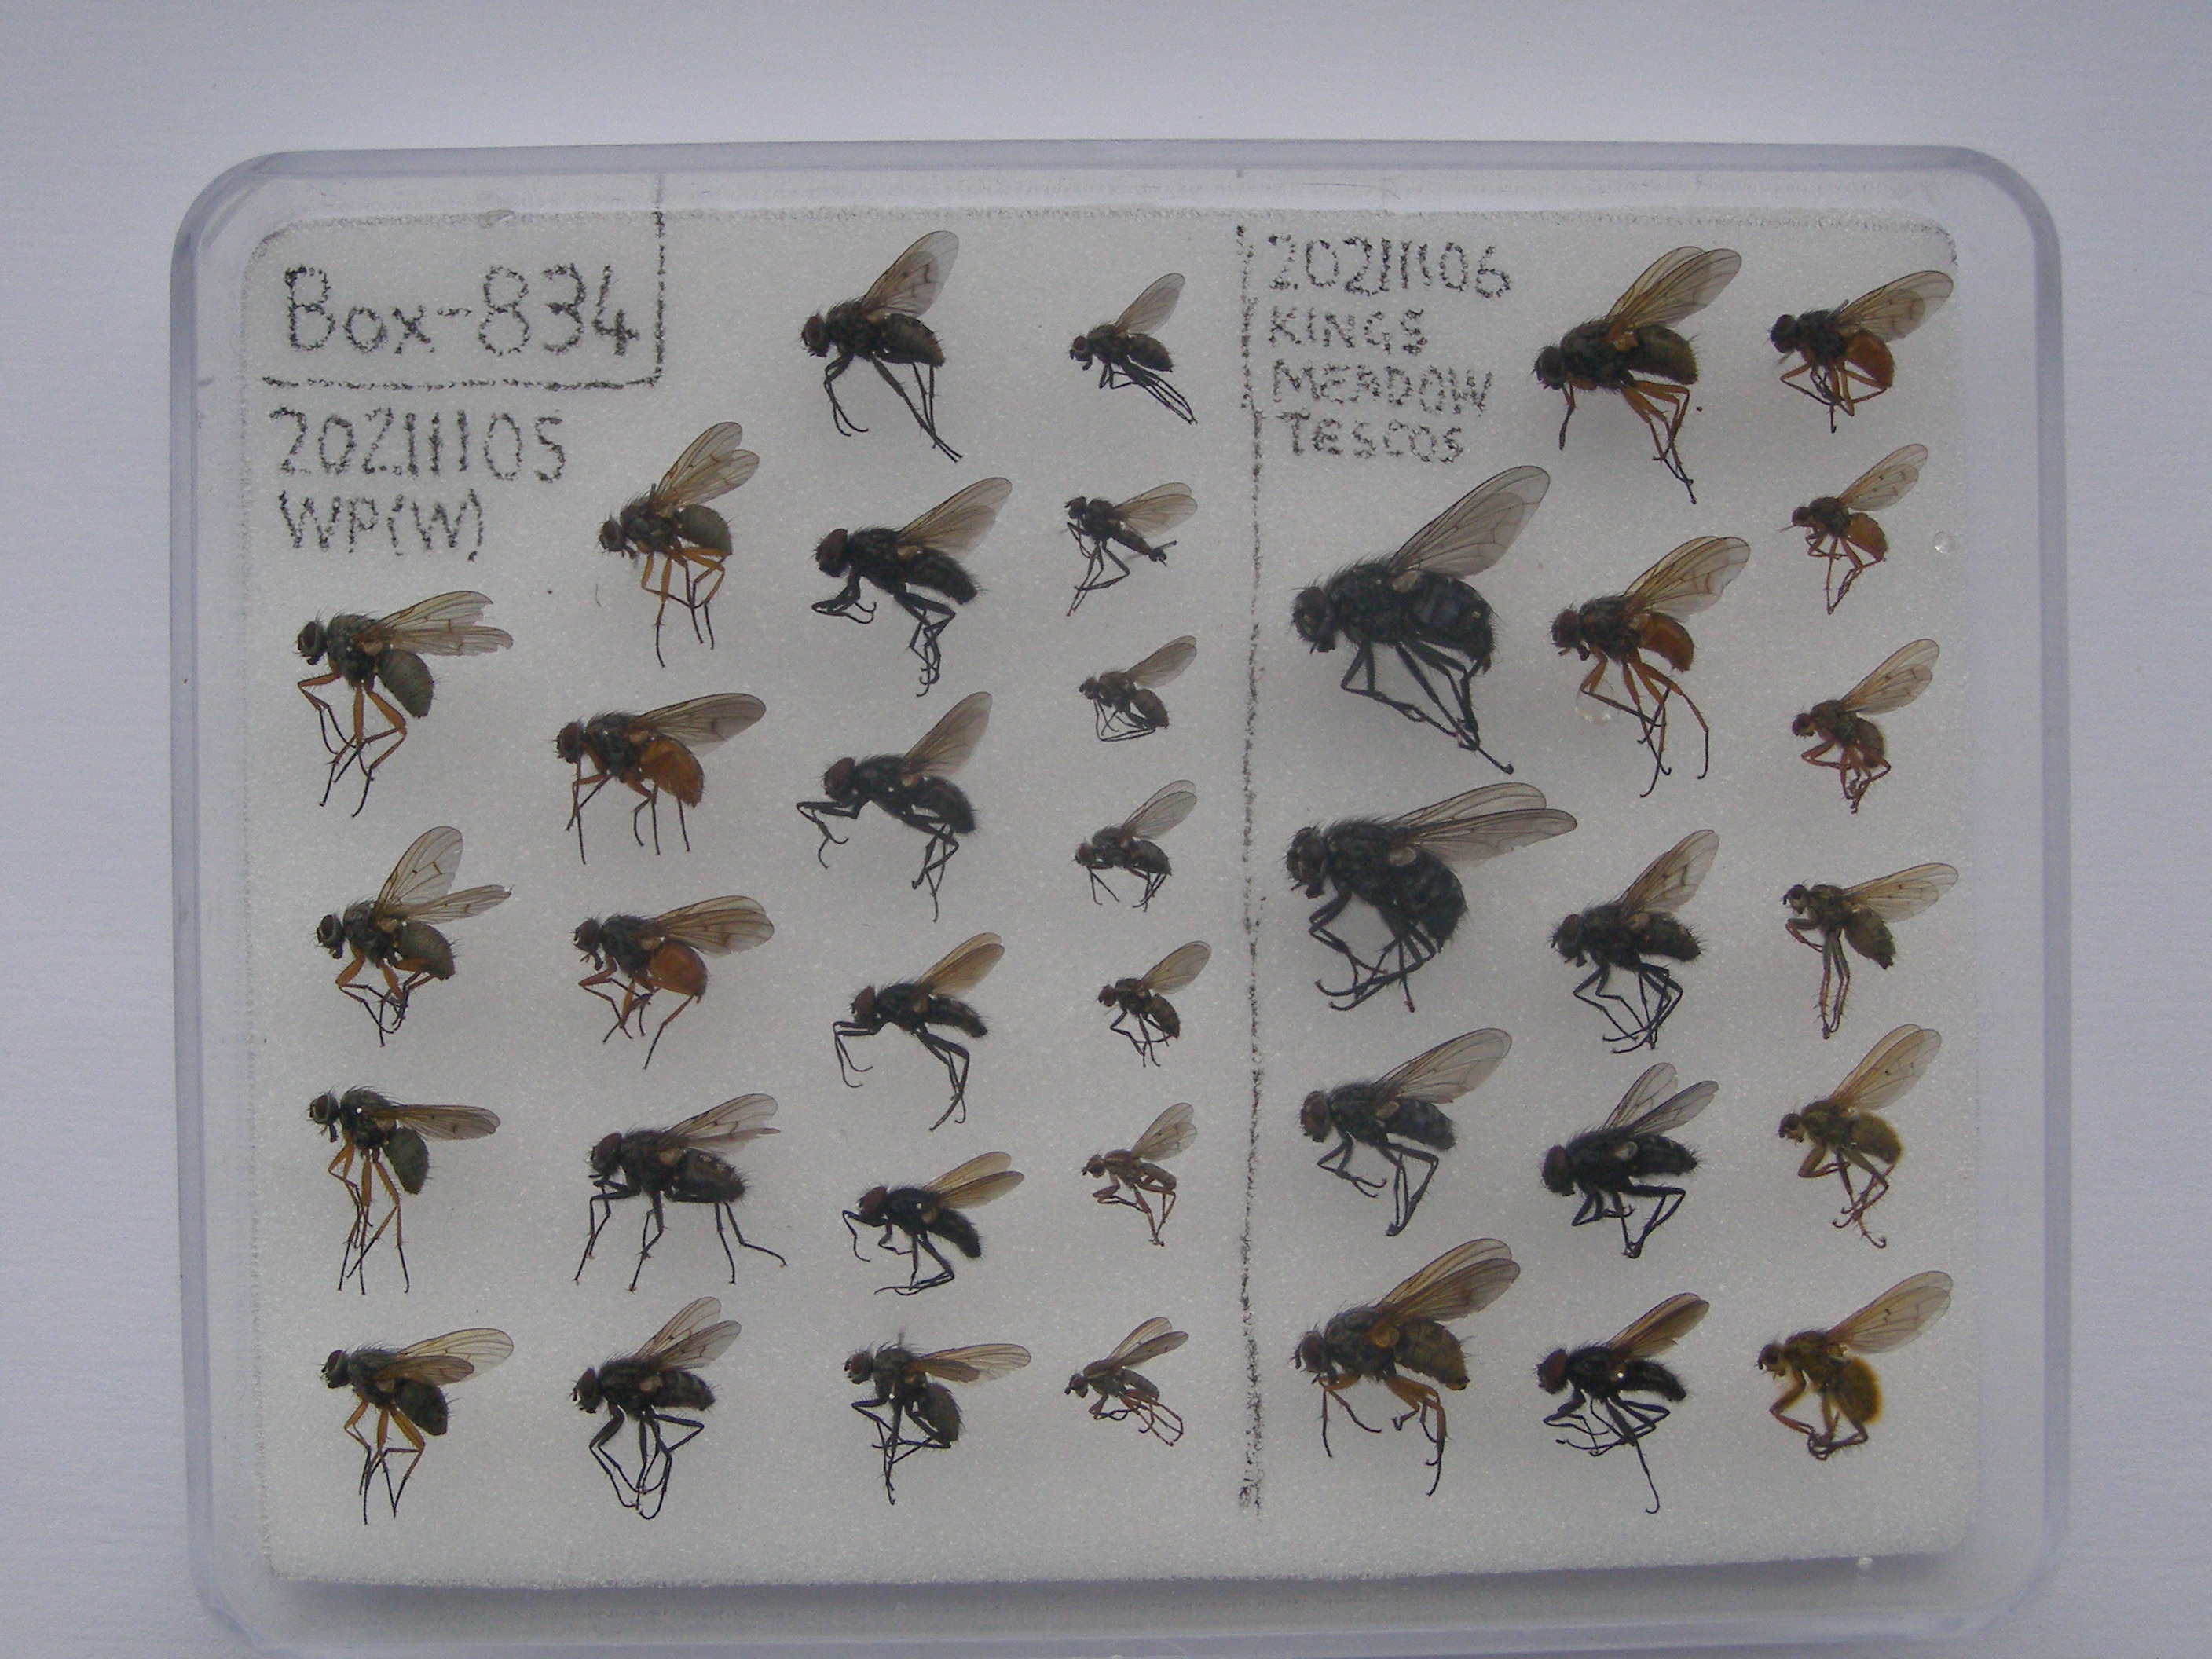 Box-834
20211105
WP(W)
20211106
KINGS
MEADOW
TESCOS